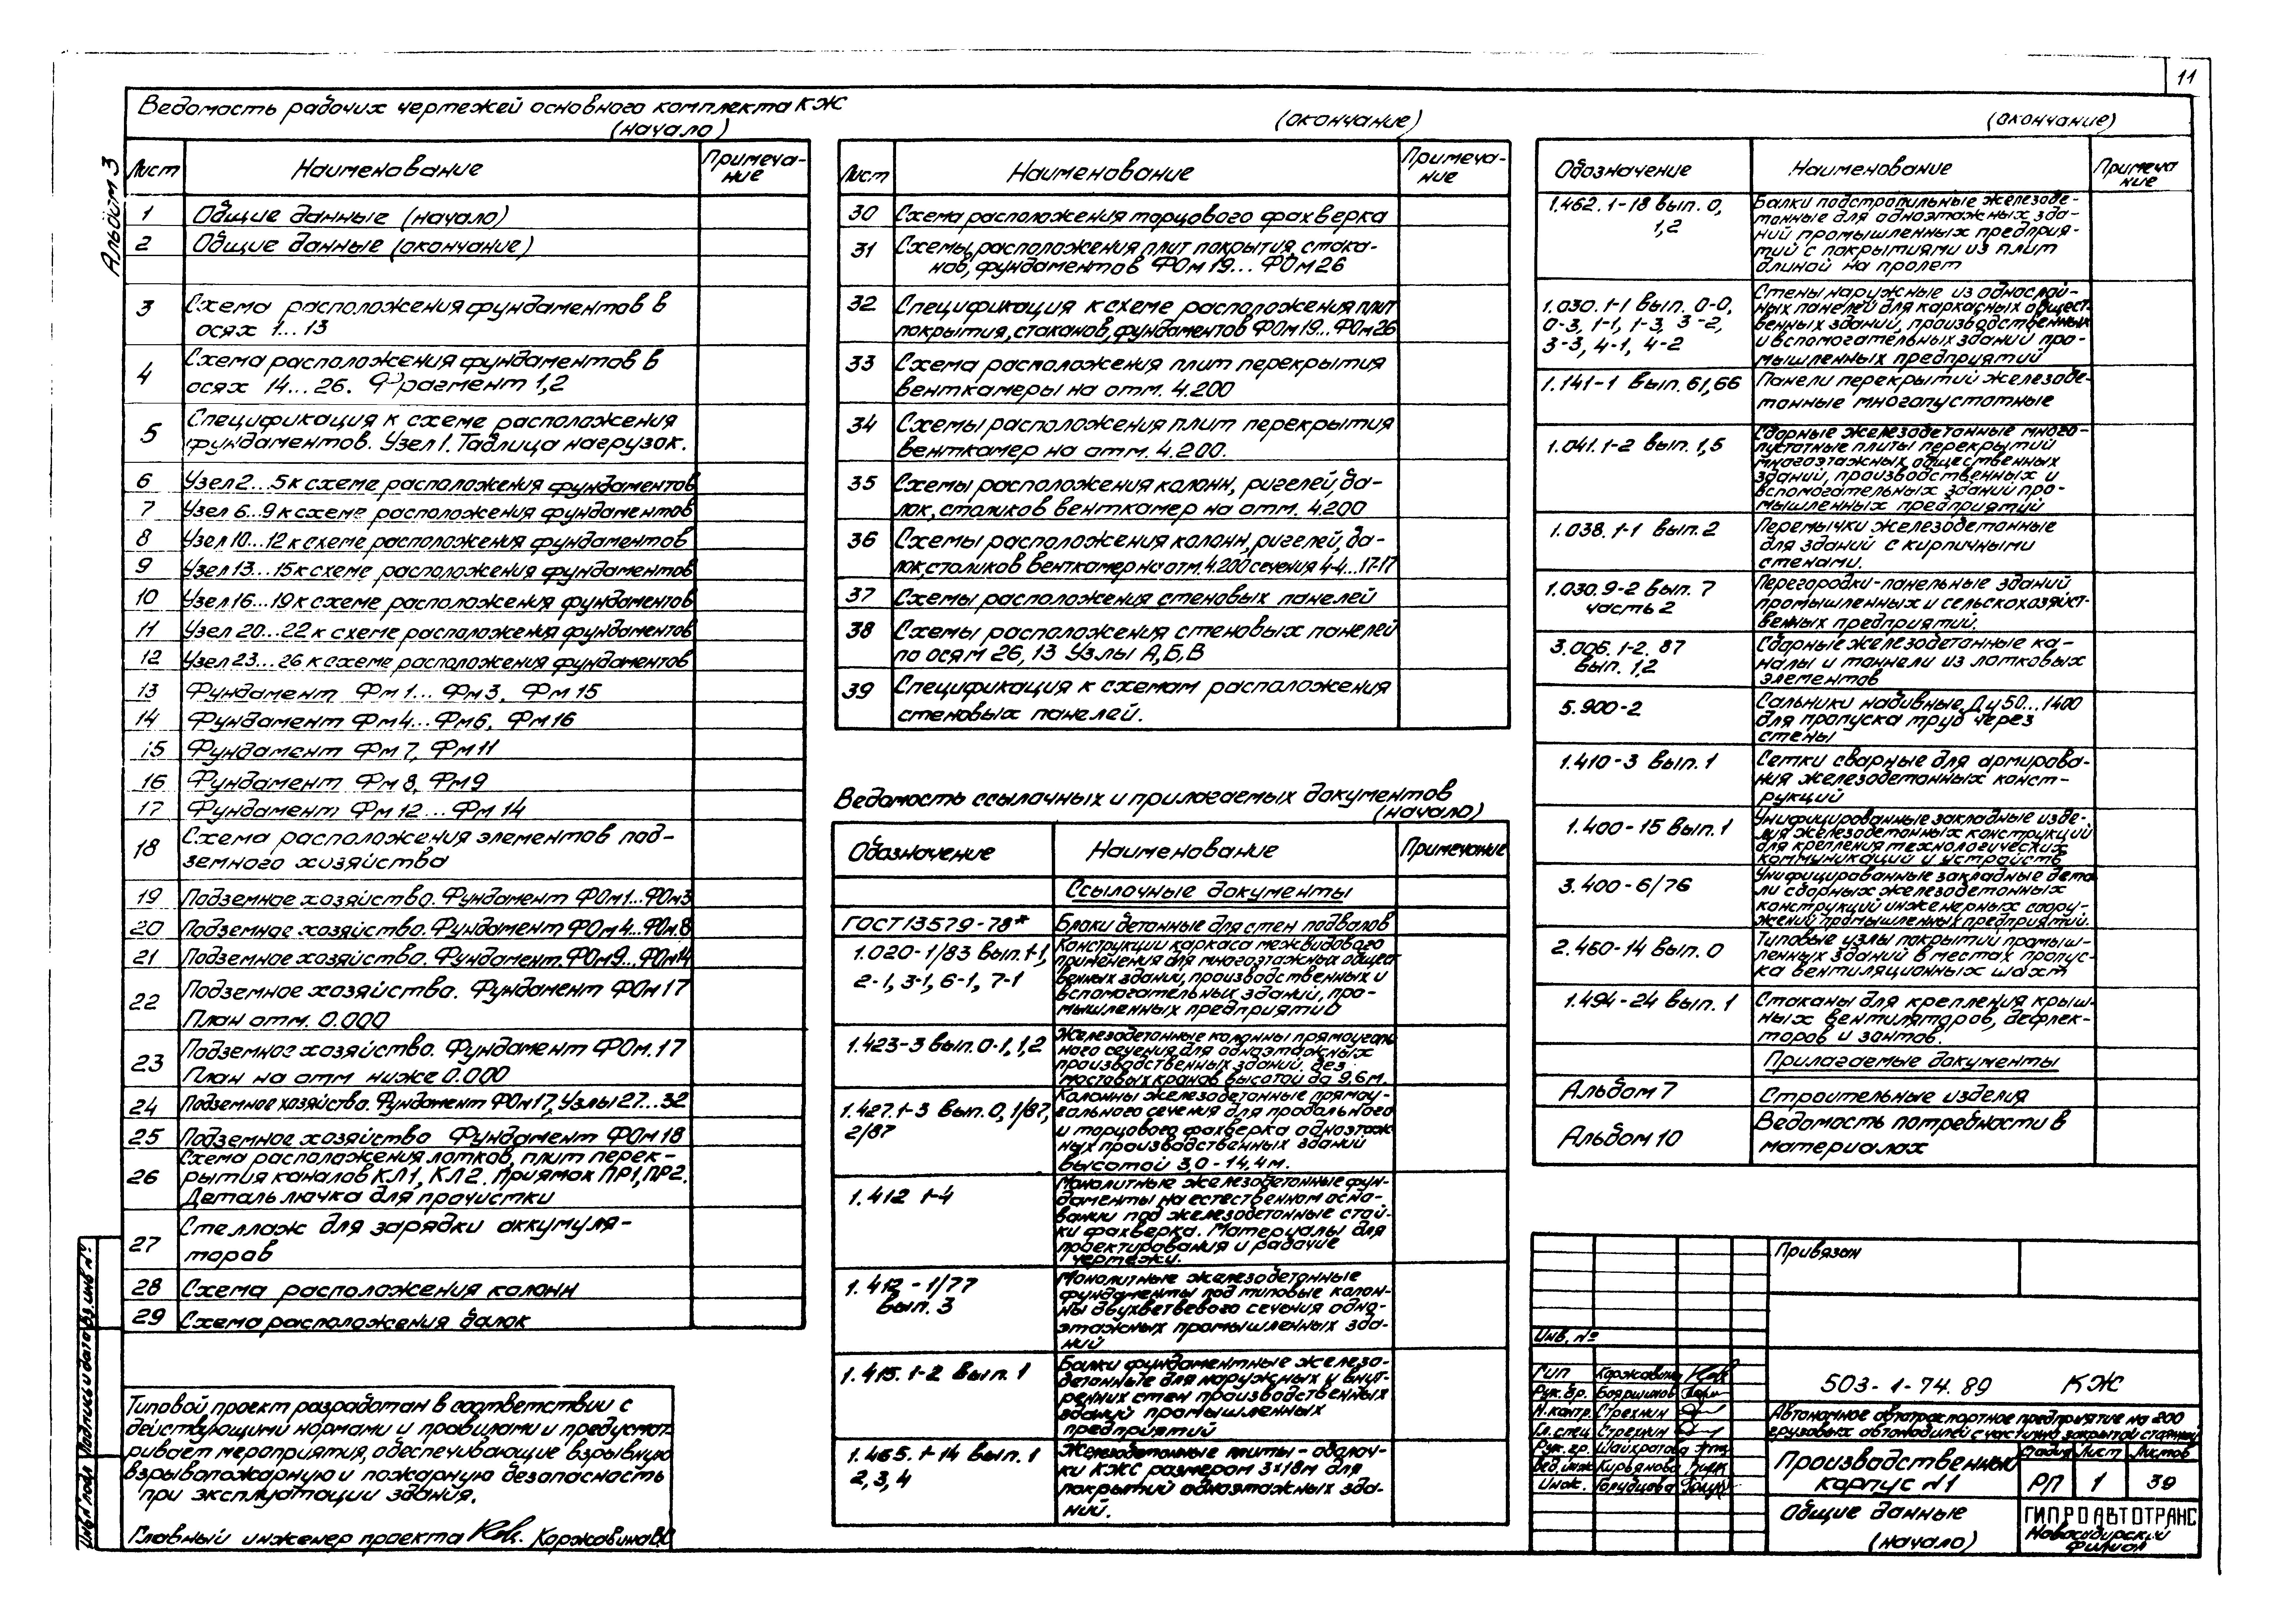 11
Альбом 3
Ведомость рабочих чертежей основного комплекта КЖ
(начало)
Лист Наименование Примеча-
ние
1 Общие данные (начало)
2 Общие данные (окончание)
3 Схема расположения фундаментов в
осях 1...13
4 Схема расположения фундаментов в
осях 14...26. Фрагмент 1,2
5 Спецификация к схеме расположения
фундаментов. Узел 1. Таблица нагрузок.
6 Узел 2...5 к схеме расположения фундаментов
7 Узел 6...9 к схеме расположения фундаментов
8 Узел 10...12 к схеме расположения фундаментов
9 Узел 13...15 к схеме расположения фундаментов
10 Узел 16...19 к схеме расположения фундаментов
11 Узел 20...22 к схеме расположения фундаментов
12 Узел 23...26 к схеме расположения фундаментов
13 Фундамент Фм 1... Фм 3, Фм 15
14 Фундамент Фм 4...Фм 6, Фм 16
15 Фундамент Фм 7, Фм 11
16 Фундамент Фм 8, Фм 9
17 Фундамент Фм 12...Фм 14
18 Схема расположения элементов под-
земного хозяйства
19 Подземное хозяйство. Фундамент ФОм1...ФОм3
20 Подземное хозяйство. Фундамент ФОм 4...ФОм.8
21 Подземное хозяйство. Фундамент. ФОм9...ФОм14
22 Подземное хозяйство. Фундамент ФОм 17
План отм. 0.000
23 Подземное хозяйство. Фундамент ФОм.17
План на отм ниже 0.000
24 Подземное хозяйство. Фундамент ФОм17, Узлы 27...32
25 Подземное хозяйство Фундамент ФОм 18
26 Схема расположения лотков, плит перек-
рытия каналов КЛ1, КЛ2. Приямок ПР1, ПР2.
Деталь лючка для прочистки
27 Стеллаж для зарядки аккумуля-
торов
28 Схема расположения колонн
29 Схема расположения балок
Типовой проект разработан в соответствии с
действующими нормами и правилами и предусмат
ривает мероприятия, обеспечивающие взрывную
взрывопожарную и пожарную безопасность
при эксплуатации здания.
Главный инженер проекта Коржавина
(окончание)
Лист Наименование Примеча-
ние
30 Схема расположения торцового фахверка
31 Схемы расположения плит покрытия, стака-
нов, фундаментов ФОм 19... ФОм 26
32 Спецификация к схеме расположения плит
покрытия, стаканов, фундаментов ФОм19...ФОм26
33 Схема расположения плит перекрытия
венткамеры на отм. 4.200
34 Схемы расположения плит перекрытия
венткамер на отм. 4.200.
35 Схемы расположения колонн, ригелей, ба-
лок, столиков венткамер на отм. 4.200
36 Схемы расположения колонн, ригелей, ба-
лок, столиков венткамер на отм. 4.200 сечения 4-4...17-17
37 Схемы расположения стеновых панелей
38 Схемы расположения стеновых панелей
по осям 26, 13 Узлы А, Б, В
39 Спецификация к схемам расположения
стеновых панелей.
Ведомость ссылочных и прилагаемых документов
(начало)
Обозначение Наименование Примечание
Ссылочные документы
ГОСТ 13579-78* Блоки бетонные для стен подвалов
1.020-1/83 вып.1-1,
2-1, 3-1, 6-1, 7-1
Конструкции каркаса межвидового
применения для многоэтажных общест
венных зданий, производственных и
вспомогательных зданий, про-
мышленных предприятий
1.423-3 вып. 0-1, 1,2
Железобетонные колонны прямоуголь
ного сечения для одноэтажных
производственных зданий, без
мостовых кранов высотой до 9,6 м.
1.427.1-3 вып. 0, 1/87,
2/87
Колонны железобетонные прямоу-
гольного сечения для продольного
и торцового фахверка одноэтаж
ных производственных зданий
высотой 3,0-14,4 м.
1.412 1-4
Монолитные железобетонные фун-
даменты на естественном осно-
вании под железобетонные стой-
ки фахверка. Материалы для
проектирования и рабочие
чертежи.
1.412-1/77
вып. 3
Монолитные железобетонные
фундаменты под типовые колон-
ны двухветвевого сечения одно-
этажных промышленных зда-
ний
1.415.1-2 вып. 1
Балки фундаментные железо-
бетонные для наружных и внут-
ренних стен производственных
зданий промышленных
предприятий
1.465.1-14 вып. 1
2, 3, 4
Железобетонные плиты-оболоч-
ки КЖС размером 3×18м для
покрытий одноэтажных зда-
ний.
(окончание)
Обозначение Наименование Примеча
ние
1.462.1-18 вып. 0,
1,2
Балки подстропильные железобе-
тонные для одноэтажных зда-
ний промышленных предприя-
тий с покрытиями из плит
длиной на пролет
1.030.1-1 вып. 0-0,
0-3, 1-1, 1-3, 3-2,
3-3, 4-1, 4-2
Стены наружные из однослой-
ных панелей для каркасных общест-
венных зданий, производственных
и вспомогательных зданий про-
мышленных предприятий
1.141-1 вып. 61, 66
Панели перекрытий железобе-
тонные многопустотные
1.041.1-2 вып. 1,5
Сборные железобетонные много-
пустотные плиты перекрытий
многоэтажных общественных
зданий, производственных и
вспомогательных зданий про-
мышленных предприятий
1.038.1-1 вып. 2
Перемычки железобетонные
для зданий с кирпичными
стенами.
1.030.9-2 вып. 7
часть 2
Перегородки-панельные зданий
промышленных и сельскохозяйст-
венных предприятий.
3.006.1-2.87
вып. 1,2
Сборные железобетонные ка-
налы и тоннели из лотковых
элементов
5.900-2
Сальники набивные Ду 50...1400
для пропуска труб через
стены
1.410-3 вып. 1
Сетки сварные для армирова-
ния железобетонных конст-
рукций
1.400-15 вып. 1
Унифицированные закладные изде-
лия железобетонных конструкций
для крепления технологических
коммуникаций и устройств
3.400-6/76
Унифицированные закладные дета
ли сборных железобетонных
конструкций инженерных соору-
жений промышленных предприятий.
2.460-14 вып. 0
Типовые узлы покрытий промыш-
ленных зданий в местах пропус-
ка вентиляционных шахт
1.494-24 вып. 1
Стаканы для крепления крыш-
ных вентиляторов, дефлек-
торов и зонтов.
Прилагаемые документы
Альбом 7 Строительные изделия
Альбом 10 Ведомость потребности в
материалах
Привязан
Инв. №
ГИП Коржавина
Рук. бр. Бояршинов
Н.контр. Стрехнин
Гл. спец Стрехнин
Рук. гр. Шайхратова
Вед. инж Кирьянова
Инж. Голубцова
503-1-74.89 КЖ
Автономное автотраспортное предприятие на 200
грузовых автомобилей с частично закрытой стоянкой
Производственный
корпус №1
Стадия Лист Листов
РП 1 39
Общие данные
(начало)
ГИПРОАВТОТРАНС
Новосибирский
филиал
Инв № подл Подпись и дата Вз. инв №